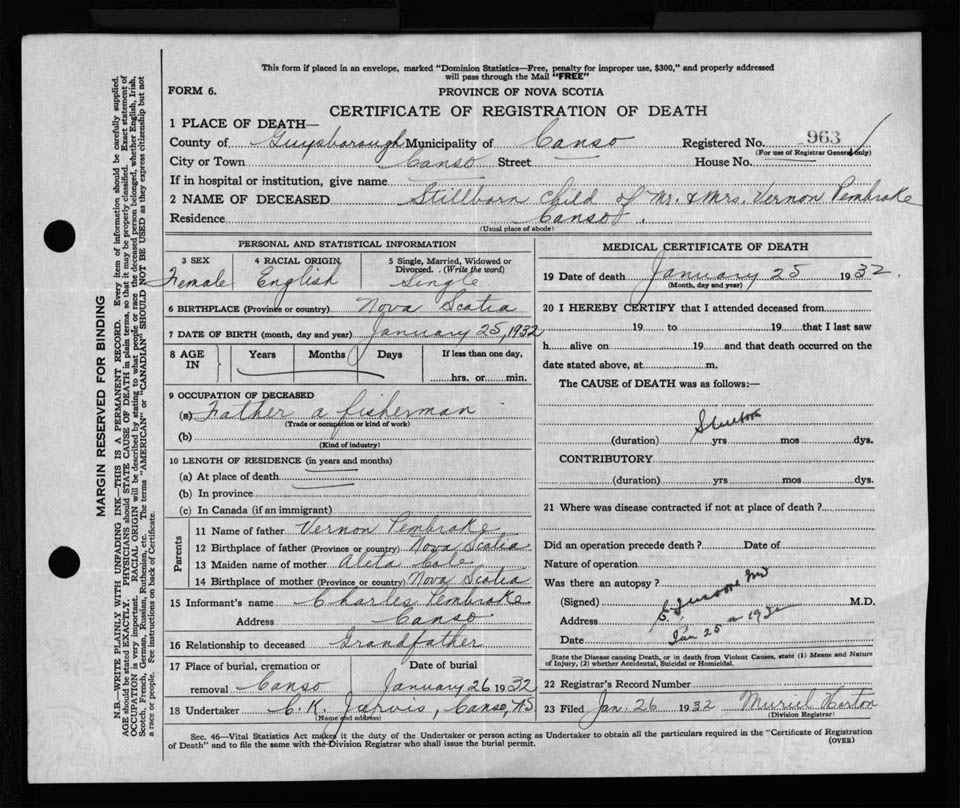 This form if placed in an envelope, marked "Dominion Statistics—Free, penalty for improper use, $300," and properly addressed
will pass through the Mail "FREE"
FORM 6.
PROVINCE OF NOVA SCOTIA
CERTIFICATE OF REGISTRATION OF DEATH
1 PLACE OF DEATH—
County of Guysborough Municipality of Canso Registered No. 963
(For use of Registrar General only)
City or Town Canso Street House No.
If in hospital or institution, give name
2 NAME OF DECEASED Stillborn child of Mr. & Mrs. Vernon Pembroke
Residence Canso
(Usual place of abode)
PERSONAL AND STATISTICAL INFORMATION
3 SEX Female
4 RACIAL ORIGIN English
5 Single, Married, Widowed or Divorced. (Write the word) Single
6 BIRTHPLACE (Province or country) Nova Scotia
7 DATE OF BIRTH (month, day and year) January 25, 1932
8 AGE IN Years Months Days If less than one day,
hrs. or min.
9 OCCUPATION OF DECEASED
(a) Father a fisherman
(Trade or occupation or kind of work)
(b)
(Kind of industry)
10 LENGTH OF RESIDENCE (in years and months)
(a) At place of death
(b) In province
(c) In Canada (if an immigrant)
Parents
11 Name of father Vernon Pembroke
12 Birthplace of father (Province or country) Nova Scotia
13 Maiden name of mother Aleta Cole
14 Birthplace of mother (Province or country) Nova Scotia
15 Informant's name Charles Pembroke
Address Canso
16 Relationship to deceased Grandfather
17 Place of burial, cremation or Date of burial
removal Canso January 26 1932
18 Undertaker C. K. Jarvis, Canso, NS
(Name and address)
MEDICAL CERTIFICATE OF DEATH
19 Date of death January 25 1932.
(Month, day and year)
20 I HEREBY CERTIFY that I attended deceased from
19 to 19 that I last saw
h alive on 19 and that death occurred on the
date stated above, at m.
The CAUSE of DEATH was as follows:—
Stillborn
(duration) yrs mos dys.
CONTRIBUTORY
(duration) yrs mos dys.
21 Where was disease contracted if not at place of death?
Did an operation precede death? Date of
Nature of operation
Was there an autopsy?
(Signed) M.D.
Address
Date Jan 25th 1932
State the Disease causing Death, or in death from Violent Causes, state (1) Means and Nature
of Injury, (2) whether Accidental, Suicidal or Homicidal.
22 Registrar's Record Number
23 Filed Jan. 26 1932 Muriel Horton
(Division Registrar)
Sec. 46—Vital Statistics Act makes it the duty of the Undertaker or person acting as Undertaker to obtain all the particulars required in the "Certificate of Registration
of Death" and to file the same with the Division Registrar who shall issue the burial permit.
(OVER)
MARGIN RESERVED FOR BINDING
N.B.—WRITE PLAINLY WITH UNFADING INK—THIS IS A PERMANENT RECORD. Every item of information should be carefully supplied.
AGE should be stated EXACTLY. PHYSICIANS should STATE CAUSE OF DEATH in plain terms, so that it may be properly classified. Exact statement of
OCCUPATION is very important. RACIAL ORIGIN will be described by stating to what people or race the deceased person belonged, whether English, Irish,
Scotch, French, German, Russian, Ruthenian, etc. The terms "AMERICAN" or "CANADIAN" SHOULD NOT BE USED as they express citizenship but not
a race or people. See instructions on back of Certificate.